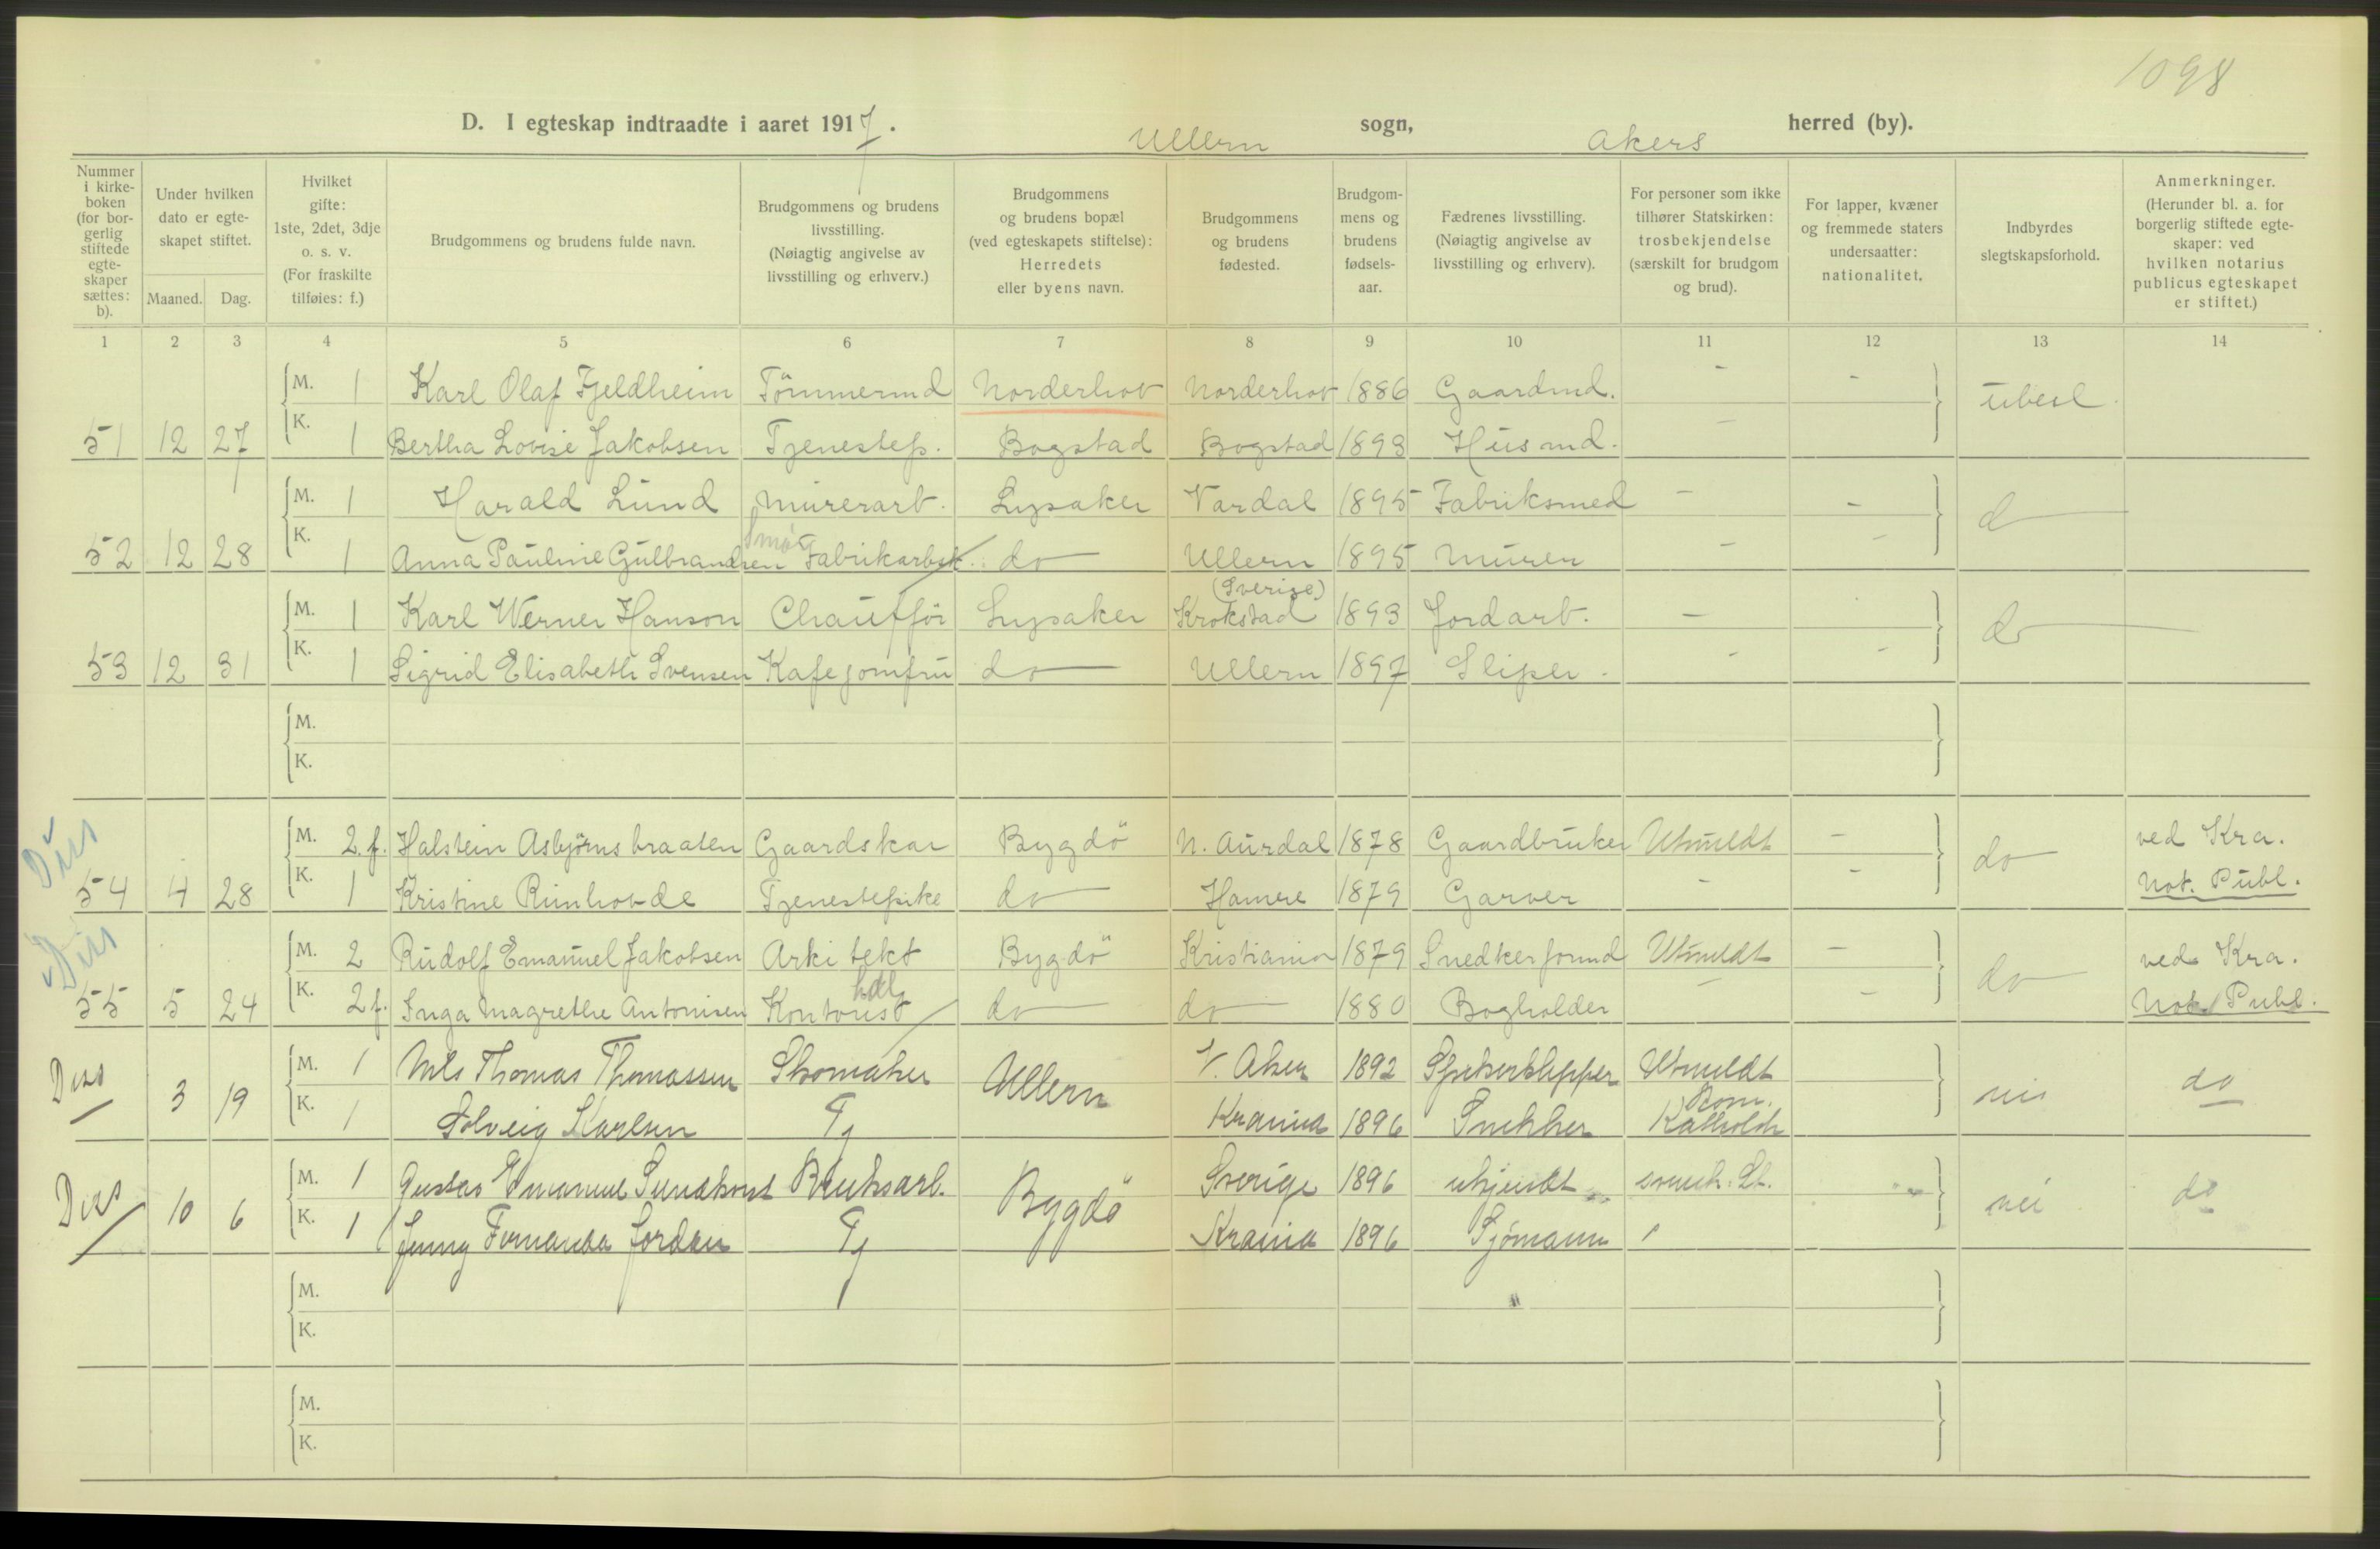 1098
D. I egteskap indtraadte i aaret 1917. Ullern sogn, Akers herred (by).
Nummer i kirke-boken (for bor-gerlig stiftede egte-skaper sættes: b).
Under hvilken dato er egte-skapet stiftet.
Maaned. Dag.
Hvilket gifte: 1ste, 2det, 3dje o. s. v. (For fraskilte tilføies: f.)
Brudgommens og brudens fulde navn.
Brudgommens og brudens livsstilling. (Nøiagtig angivelse av livsstilling og erhverv.)
Brudgommens og brudens bopæl (ved egteskapets stiftelse): Herredets eller byens navn.
Brudgommens og brudens fødested.
Brudgom-mens og brudens fødsels-aar.
Fædrenes livsstilling. (Nøiagtig angivelse av livsstilling og erhverv).
For personer som ikke tilhører Statskirken: trosbekjendelse (særskilt for brudgom og brud).
For lapper, kvæner og fremmede staters undersaatter: nationalitet.
Indbyrdes slegtskapsforhold.
Anmerkninger. (Herunder bl. a. for borgerlig stiftede egte-skaper: ved hvilken notarius publicus egteskapet er stiftet.)
1 2 3 4 5 6 7 8 9 10 11 12 13 14
M. 1 Karl Olaf Fjeldheim Tömmermd Norderhov Norderhov 1886 Gaardmd. - - ubesl.
51 12 27 K. 1 Bertha Lovise Jakobsen Tjenestep. Bogstad Bogstad 1893 Husmd. -
M. 1 Harald Lund Murerarb. Lysaker Vardal 1895 Fabriksmed - - do
Smör
52 12 28 K. 1 Anna Pauline Gulbrandsen Fabrikarbsk. do Ullern 1895 Murer - -
(Sverige)
M. 1 Karl Werner Hanson Chaufför Lysaker Krokstad 1893 Jordarb. - do
53 12 31 K. 1 Sigrid Elisabeth Svensen Kafejomfru do Ullern 1897 Sliper - -
M.
K.
Diss
M. 2.f. Halstein Asbjörnsbraaten Gaardskar Bygdö N. Aurdal 1878 Gaardbruker Utmeldt - do ved Kra.
54 4 28 K. 1 Kristine Rimhovde Tjenestepike do 1879 Garver - - Not. Publ.
Diss
M. 2 Rudolf Emanuel Jakobsen Arkitekt Bygdö Kristiania 1879 Snedkerformd Utmeldt - do ved Kra.
55 5 24 K. 2f. Inga Magrethe Antonisen Kontorist do do 1880 Bogholder - - Not. Publ.
Diss 3 19 M. 1 Nils Thomas Thomassen Skomaker Ullern V. Aker 1892 Utmeldt nei do
Rom.
K. 1 Solveig Karlsen Tj Krania 1896 Snekker Katholsk
Diss 10 6 M. 1 Gustav Emanuel Bruksarb. Bygdö Sverige 1896 ukjendt svensk. St. nei do
K. 1 Jenny Fernanda Jordan Tj Krania 1896 Sjömann
M.
K.
M.
K.